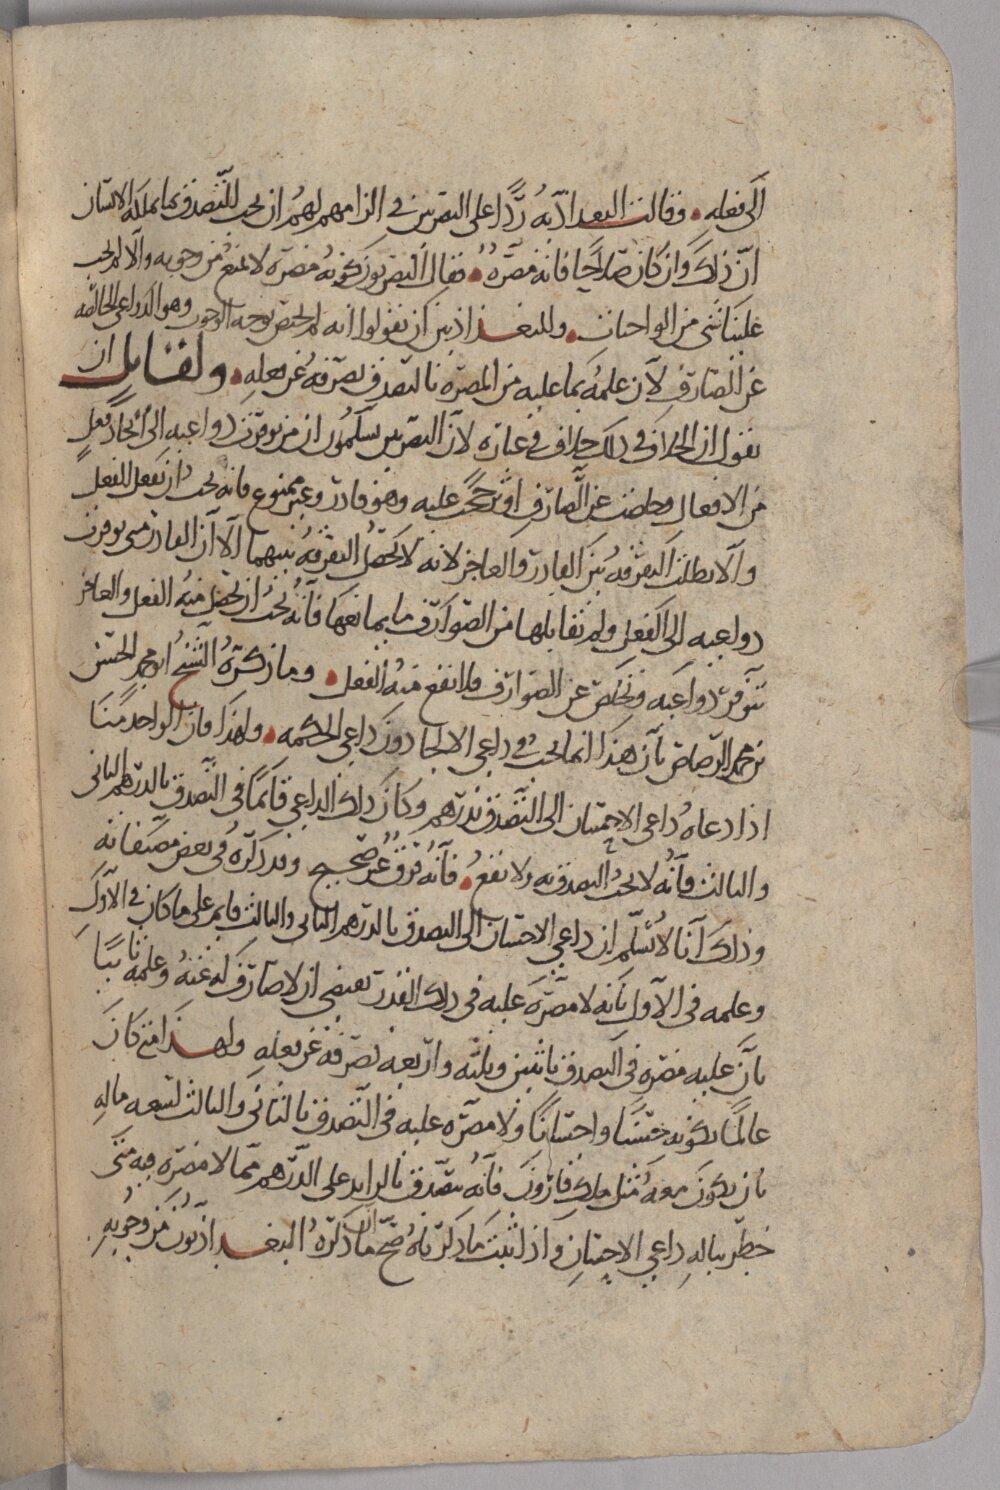 الى فعله وقالت البغداذية ردًّا على البصريين في الزامهم لهم ان يجب التصدق بما يملكه الانسان
ان ذلك وان كان صلاحًا فانه مضرة فقال البصريون كونه مضرة لا يمنع من وجوبه والا لم يجب
علينا شي من الواجبات وللبغداذيين ان يقولوا انه لم يختص بوجه الوجوب وهو الداعي الخالص
عن الصارف لان علمه بما عليه من المضرة بالتصدق يصرفه عن فعله ولقائل ان
يقول ان الخلاف في ذلك خلاف في عبارة لان البصريين يسلمون ان من توفرت دواعيه الى ايجاد فعل
من الافعال وخلصت عن الصارف او ترجحت عليه وهو قادر وغير ممنوع فانه يجب ان يفعل الفعل
والا بطلت التفرقة بين القادر والعاجز لانه لا تحصل التفرقة بينهما الا ان القادر متى توفرت
دواعيه الى الفعل ولم تقابلها من الصوارف ما يمانعها فانه يجب ان يحصل منه الفعل والعاجز
تتوفر دواعيه وتخلص عن الصوارف فلا يقع منه الفعل وما ذكره الشيخ ابو محمد الحسن
بن محمد الرصاص بان هذا انما يجب في داعي الالجا دون داعي الحكمه ولهذا فان الواحد منا
اذا دعاه داعي الاحسان الى التصدق بدرهم وكان ذلك الداعي قائمًا في التصدق بالدرهم الثاني
والثالث فانه لا يجب التصدق به ولا يقع فانه فرق غير صحيح وقد ذكره في بعض مصنفاته
وذلك انا لا نسلم ان داعي الاحسان الى التصدق بالدرهم الثاني والثالث قايم على ما كان في الاول
وعلمه في الاول بانه لا مضرة عليه في ذلك القدر يقتضي ان لا صارف له عنه وعلمه ثانيًا
بان عليه مضرة في التصدق باثنين وثلثه واربعه يصرفه عن فعله ولهذا متى كان
عالمًا بكونه حسنًا واحسانًا ولا مضرة عليه في التصدق بالثاني والثالث لسعه ماله
بان يكون معه مثل ملك قارون فانه يتصدق بالزايد على الدرهم مما لا مضرة فيه متى
خطر بباله داعي الاحسان واذا ثبت ما ذكرناه صح ما ذكره البغداذيون من وجوبه